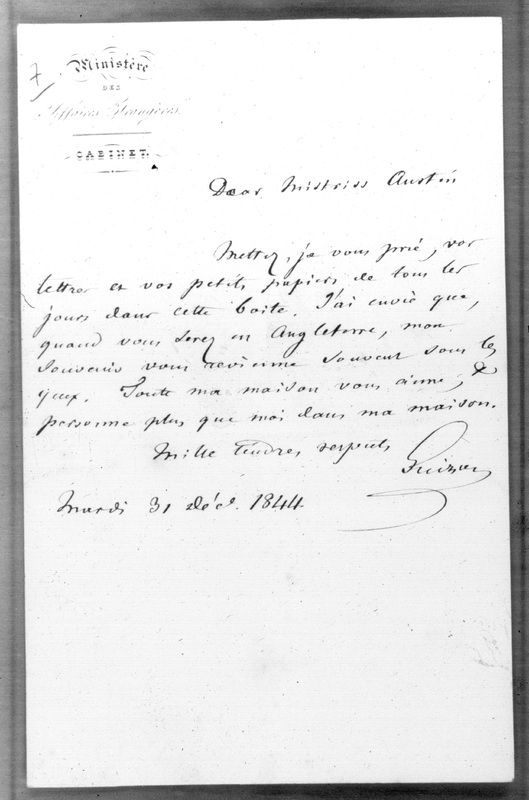 7
Ministère
DES
Affaires Etrangères
CABINET.
Dear Mistriss Austin
Mettez, je vous prie, vos
lettres et vos petits papiers de tous les
jours dans cette boite. J'ai envie que,
quand vous serez en Angleterre, mon
souvenir vous revienne souvent sous les
yeux. Toute ma maison vous aime, &
personne plus que moi dans ma maison.
Mille tendres respects
Guizot
Mardi 31 Déc. 1844